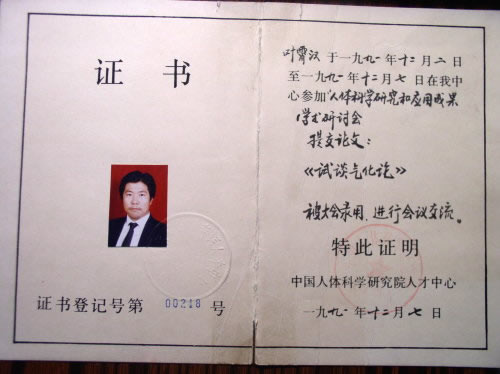 证书
证书登记号第 00218 号
叶霄汉于一九九一年十二月二日
至一九九一年十二月七日在我中
心参加"人体科学研究和应用成果
学术研讨会
提交论文：
《试谈气化论》
被大会录用、进行会议交流。
特此证明
中国人体科学研究院人才中心
一九九一年十二月七日